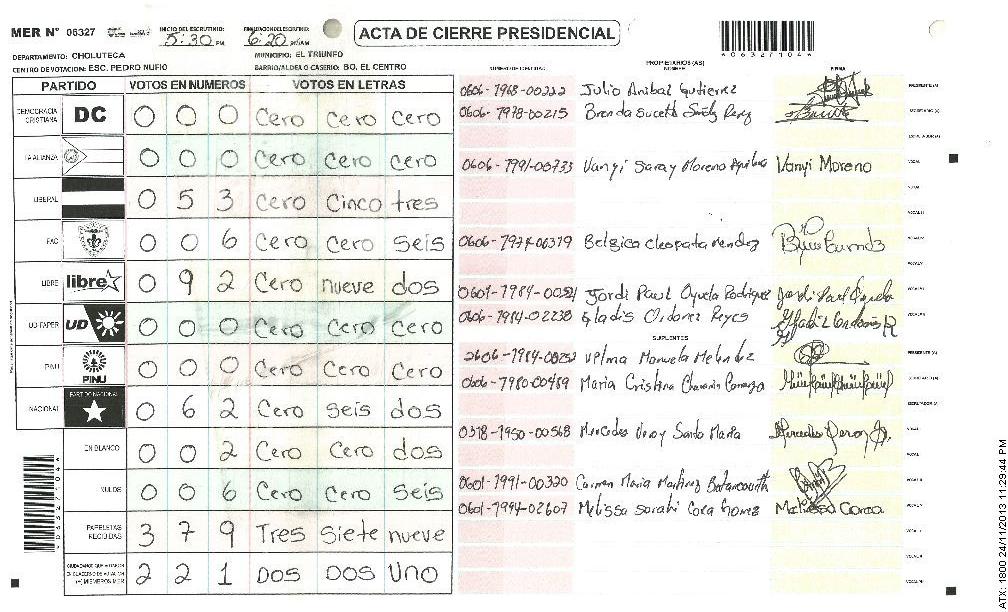 MER N° 06327 INICIO DEL ESCRUTINIO: 5:30 PM FINALIZACION DEL ESCRUTINIO: 6:20 PM/AM ACTA DE CIERRE PRESIDENCIAL
DEPARTAMENTO: CHOLUTECA MUNICIPIO: EL TRIUNFO
CENTRO DE VOTACION: ESC. PEDRO NUFIO BARRIO/ALDEA O CASERIO: BO. EL CENTRO
PARTIDO VOTOS EN NUMEROS VOTOS EN LETRAS
DEMOCRACIA CRISTIANA DC 0 0 0 Cero Cero Cero
LA ALIANZA 0 0 0 Cero Cero Cero
LIBERAL 0 5 3 Cero Cinco tres
PAC 0 0 6 Cero Cero Seis
LIBRE libre 0 9 2 Cero nueve dos
UD-FAPER UD 0 0 0 Cero Cero Cero
PINU PINU 0 0 0 Cero Cero Cero
NACIONAL PARTIDO NACIONAL 0 6 2 Cero Seis dos
EN BLANCO 0 0 2 Cero Cero dos
NULOS 0 0 6 Cero Cero Seis
PAPELETAS RECIBIDAS 3 7 9 Tres Siete nueve
2 2 1 DOS DOS Uno
NUMERO DE IDENTIDAD PROPIETARIOS (AS) NOMBRE FIRMA
0606-1968-00222 Julio Anibal Gutierrez PRESIDENTE (A)
0606-1978-00215 Brenda SECRETARIO (A)
ESCRUTADOR (A)
0606-1991-00733 Vanyi Saray Moreno Vanyi Moreno VOCAL
Belgica Cleopata Mendez
Jordi Paul Oyuela Rodriguez
0606-1984-02238 Gladis Ordoñez Reyes
SUPLENTES
Velma Manuela Melendez PRESIDENTE (A)
Maria Cristina SECRETARIO (A)
ESCRUTADOR (A)
0318-1950-00568 Mercedes Santo Maria VOCAL
0601-1991-00320 Carmen Maria Martinez Betancourth
0601-1994-02607 Melissa Sarahi Melissa
ATX: 1800 24/11/2013 11:29:44 PM